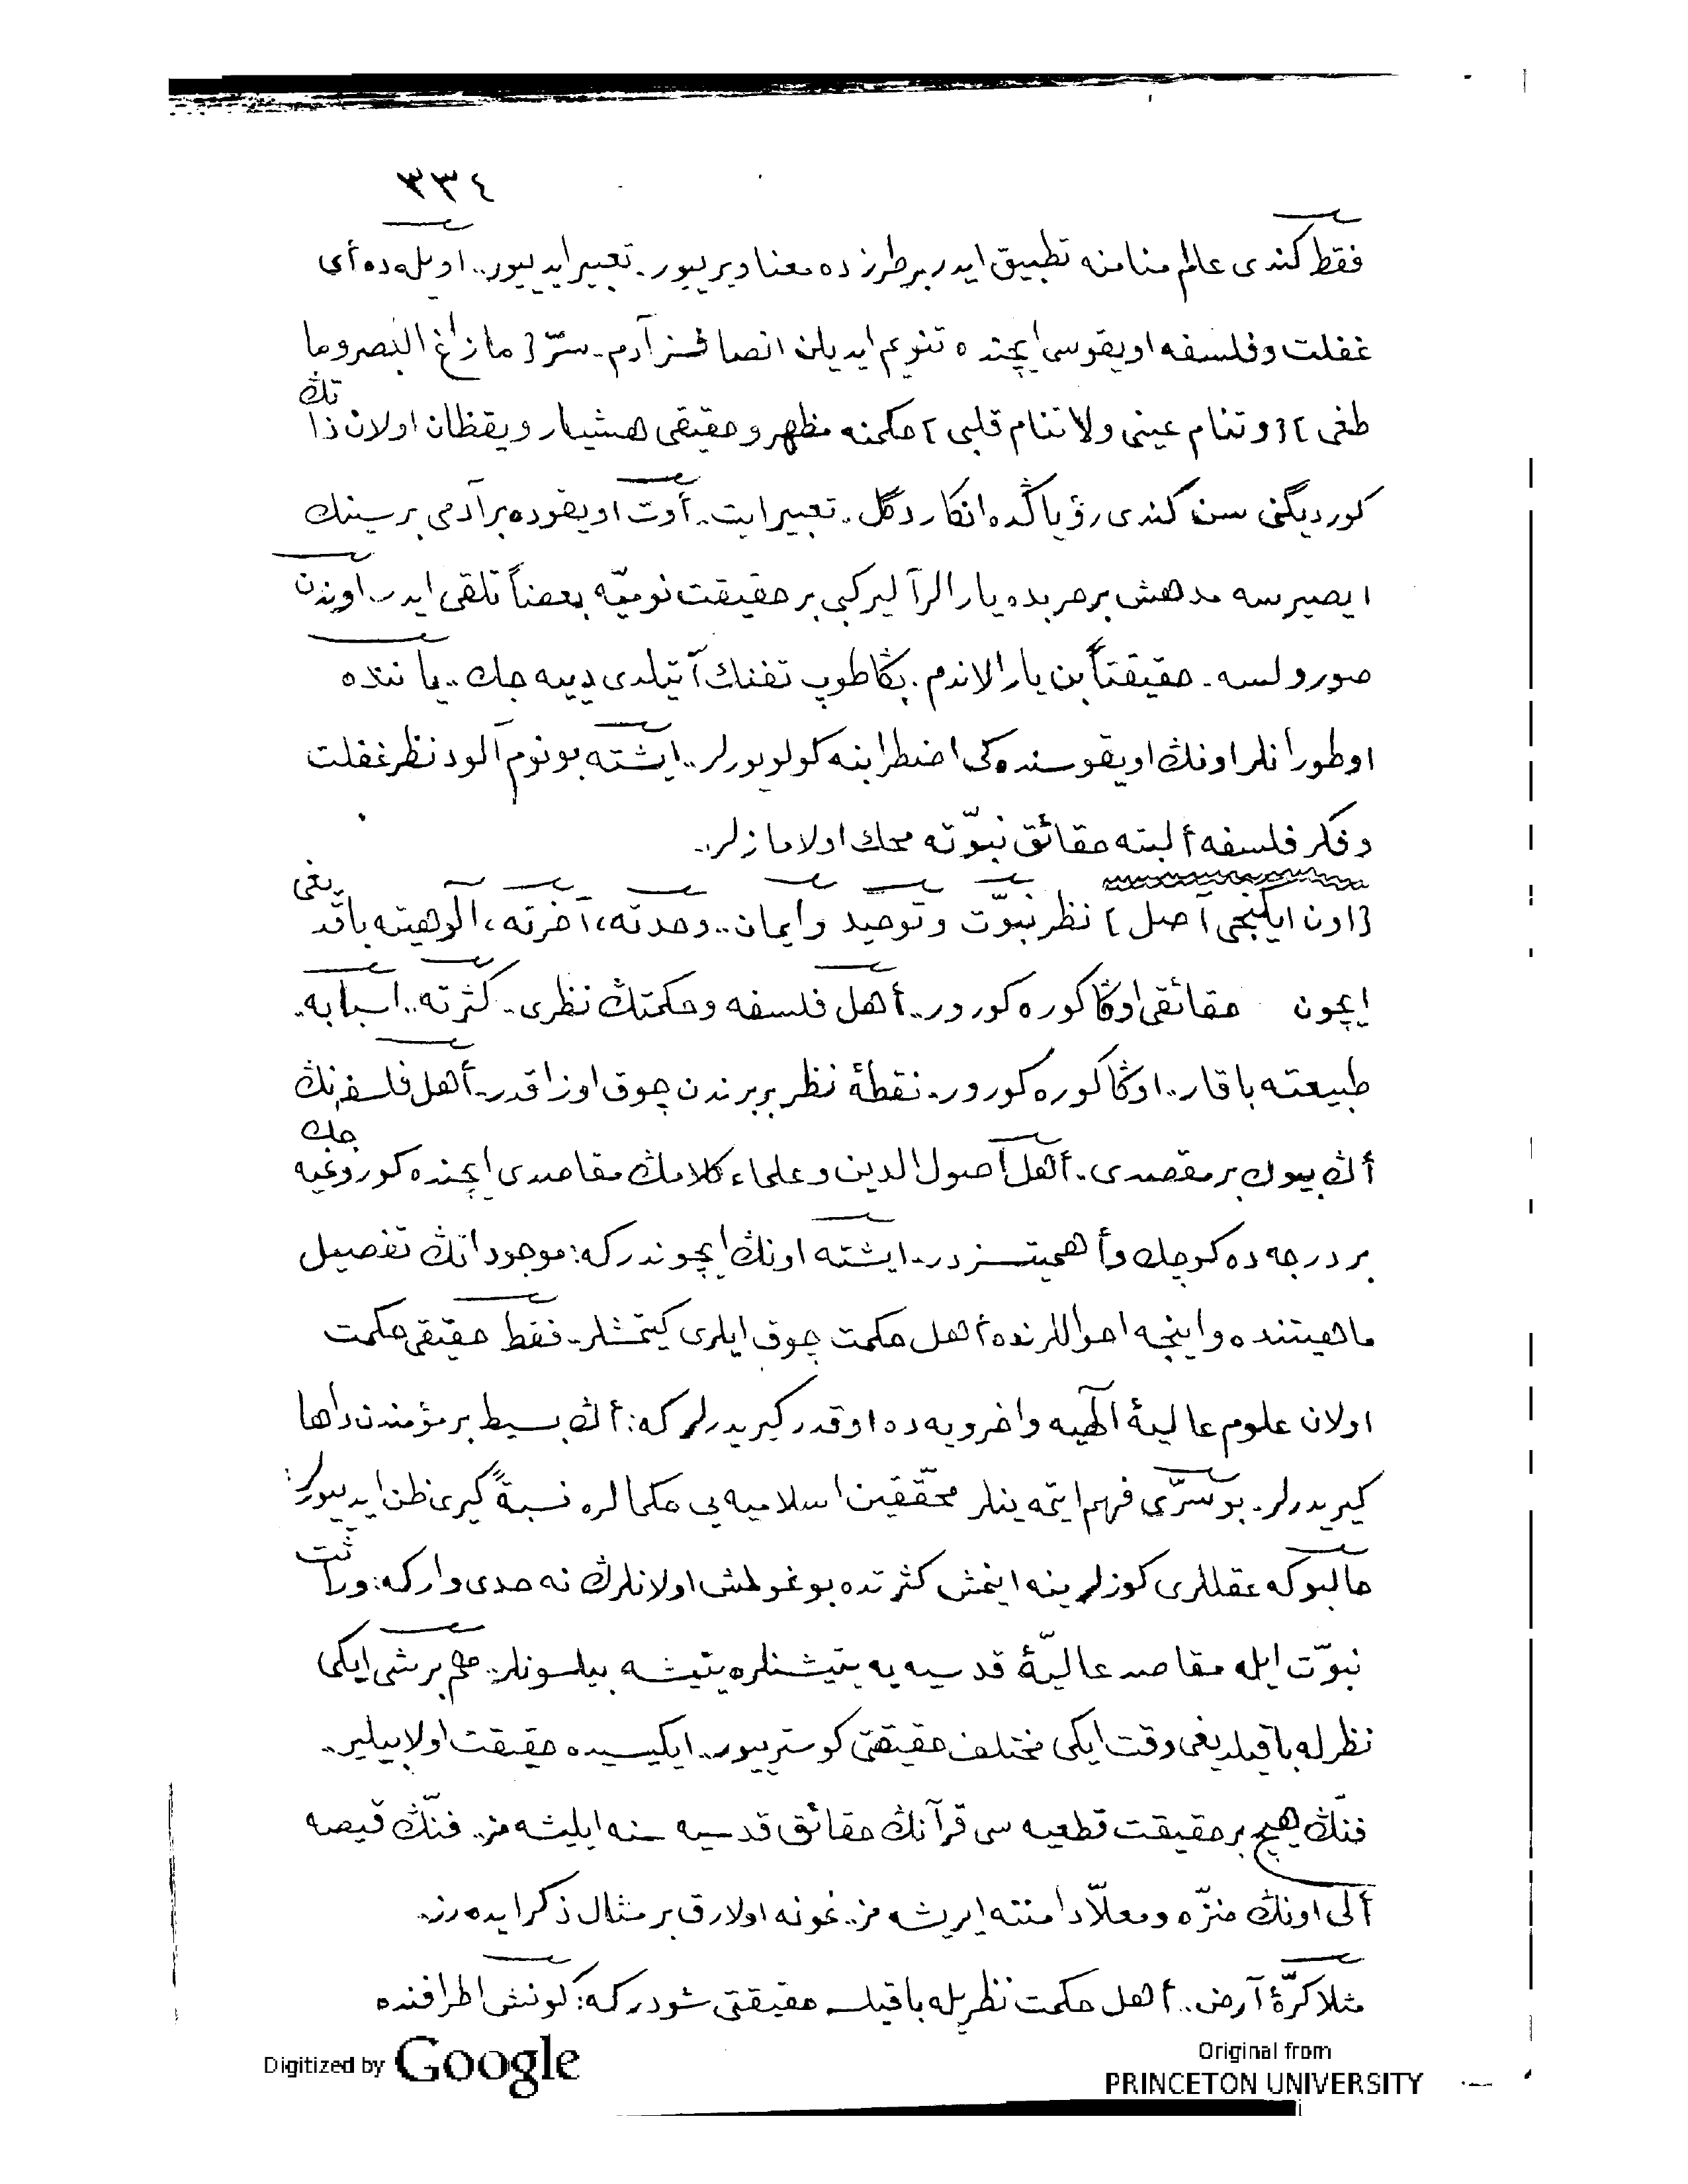 ٣٣٤
فقط كندى عالم منامنه تطبيق ايدر بر طرزده معنا ويرييور. تعبير ايدييور.. اويله ده أى
غفلت وفلسفه اويقوسى ايچنده تنويم ايديلن انصافسز آدم. سرّ [ ما زاغ البصر وما
طغى ] [ و تنام عينى ولا تنام قلبى ] حكمنه مظهر و حقيقى هشيار و يقظان اولان ذاتڭ
كورديگنى سن كندى رؤياڭده انكار دگل.. تعبير ايت.. أوت اويقوده بر آدمى بر سينك
ايصيرسه مدهش بر حربده يارالر آلير كبى بر حقيقت نوميّه بعضاً تلقى ايدر.. اوندن
صورولسه. حقيقتاً بن يارالاندم. بڭا طوپ تفنك آتيلدى دييه جك.. ياننده
اوطورانلر اونڭ اويقوسنده كى اضطرابنه كولويورلر.. ايشته بو نوم آلود نظر غفلت
و فكر فلسفه ألبته حقائق نبوّته محك اولامازلر..
[ اون ايكنجى أصل ] نظر نبوّت و توحيد و ايمان.. وحدته، آخرته، ألوهيته باقديغى
ايچون حقائقى اوڭا كوره كورور.. أهل فلسفه و حكمتڭ نظرى.. كثرته.. اسبابه..
طبيعته باقار.. اوڭا كوره كورور. نقطهٔ نظر بربرندن چوق اوزاقدر.. أهل فلسفه‌نڭ
أڭ بيوك بر مقصدى. أهل أصول الدين و علماء كلامڭ مقاصدى ايچنده كورونمیه‌جك
بر درجه ده كوچك و أهميتسز در.. ايشته اونڭ ايچوندر كه: موجوداتڭ تفصيل
ماهيتنده و اينجه احواللرنده أهل حكمت چوق ايلرى كيتمشلر.. فقط حقيقى حكمت
اولان علوم عاليهٔ آلهيه و اخرويه ده او قدر كيريدرلر كه: أڭ بسيط بر مؤمندن داها
كيريدرلر. بو سرّى فهم ايتمه‌ينلر محقّقين اسلاميه يى حكمالره نسبةً كيرى ظن ايدييورلر
حالبوكه عقللرى كوزلرينه اينمش كثرتده بوغولمش اولانلرڭ نه حدى وار كه: وراثت
نبوّت ايله مقاصد عاليهٔ قدسيه يه يتيشنلره يتيشه بيلسونلر.. هم بر شى ايكى
نظرله باقيلديغى وقت ايكى مختلف حقيقتى كوستريیور.. ايكيسيده حقيقت اولابيلير..
فنّڭ هيچ بر حقيقت قطعيه سى قرآنڭ حقائق قدسيه سنه ايليشه مز.. فنّڭ قيصه
ألى اونڭ منزّه و معلّا دامننه ايريشه مز.. نمونه اولارق بر مثال ذكر ايده رز.
مثلا كرّهٔ أرض.. أهل حكمت نظريله باقيلسه حقيقتى شودر كه: كونش اطرافنده
Digitized by Google
Original from
PRINCETON UNIVERSITY